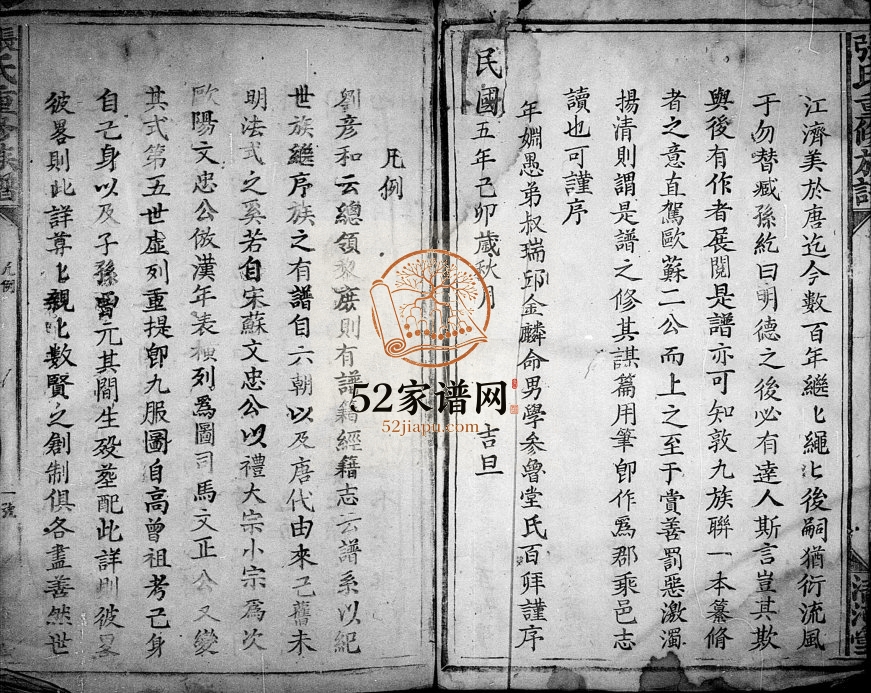 張氏重修族譜
江濟美於唐迄今數百年繼〻繩〻後嗣猶衍流風
于勿朁臧孫紇曰明德之後必有達人斯言豈其欺
與後有作者展閱是譜亦可知敦九族聯一本纂脩
者之意直駕歐蘇二公而上之至于賞善罰惡激濁
揚清則謂是譜之修其謀篇用筆卽作爲郡乘邑志
讀也可謹序
年姻愚弟叔瑞邱金麟命男學參魯堂氏百拜謹序
民國五年己卯歲秋月
吉旦
凡例
劉彥和云總領黎庶則有譜籍經籍志云譜系以紀
世族繼序族之有譜自六朝以及唐代由來已舊未
明法式之奚若自宋蘇文忠公以禮大宗小宗爲次
歐陽文忠公倣漢年表橫列爲圖司馬文正公又變
其式第五世虛列重提卽九服圖自高曾祖考己身
自己身以及子孫曾元其間生殁塟配此詳則彼畧
彼畧則此詳尊〻親〻數賢之創制俱各盡善然世
張氏重修族譜
凡例
一號
52家谱网
52jiapu.com